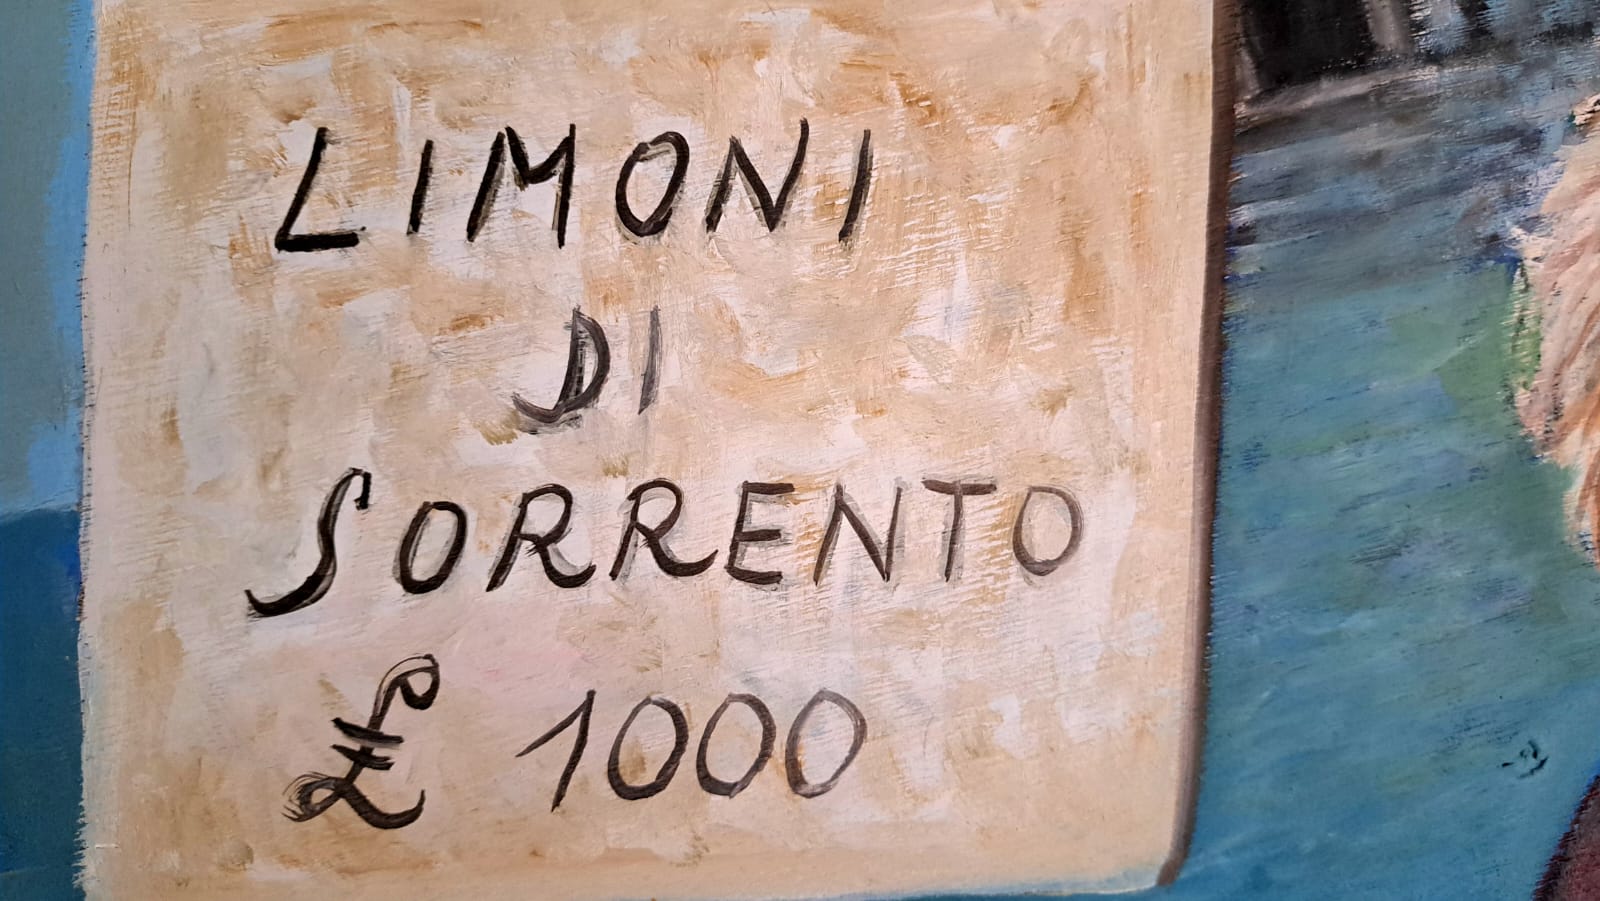 LIMONI
DI
SORRENTO
£ 1000